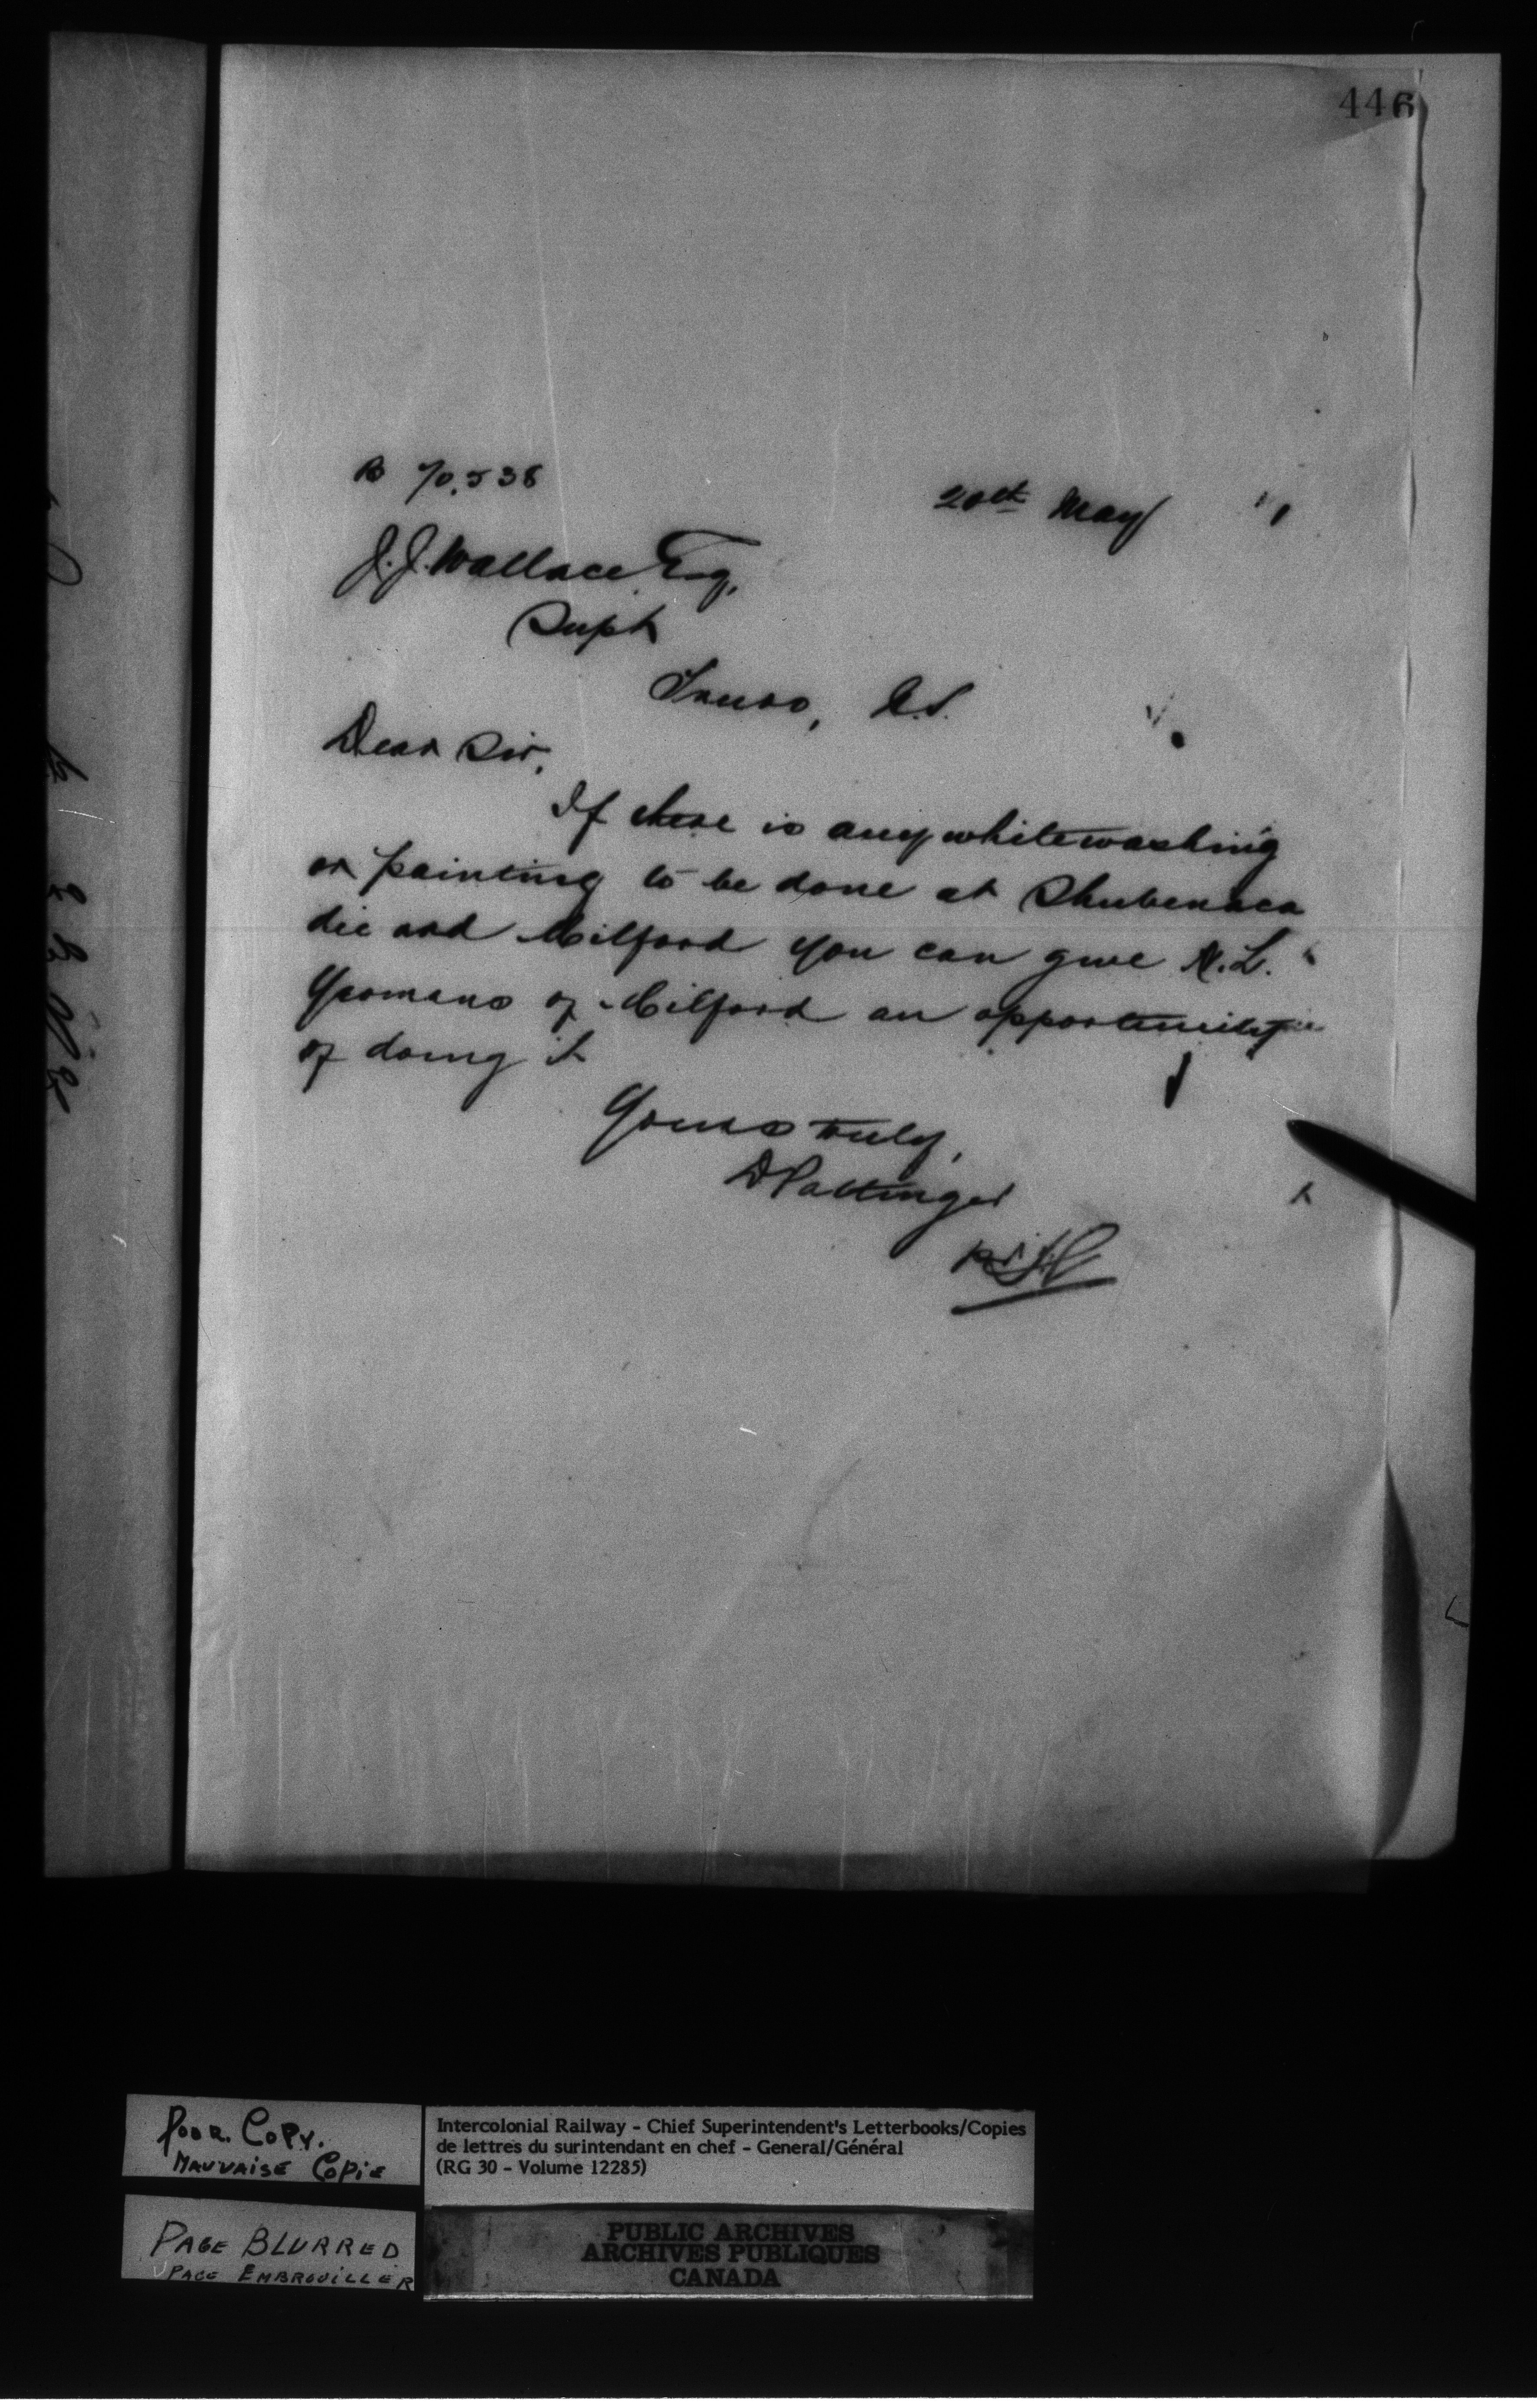 446
B 70,538
20th May "
J. J. Wallace Esq,
Supt
Truro, N.S.
Dear Sir,
If there is any whitewashing
or painting to be done at Shubenaca
die and Milford you can give N. L.
Yeomans of Milford an opportunity
of doing it
Yours truly,
D Pottinger
Poor. Copy.
Mauvaise Copie
Intercolonial Railway - Chief Superintendent's Letterbooks/Copies
de lettres du surintendant en chef - General/Général
(RG 30 - Volume 12285)
PAGE BLURRED
PAGE EMBROUILLER
PUBLIC ARCHIVES
ARCHIVES PUBLIQUES
CANADA